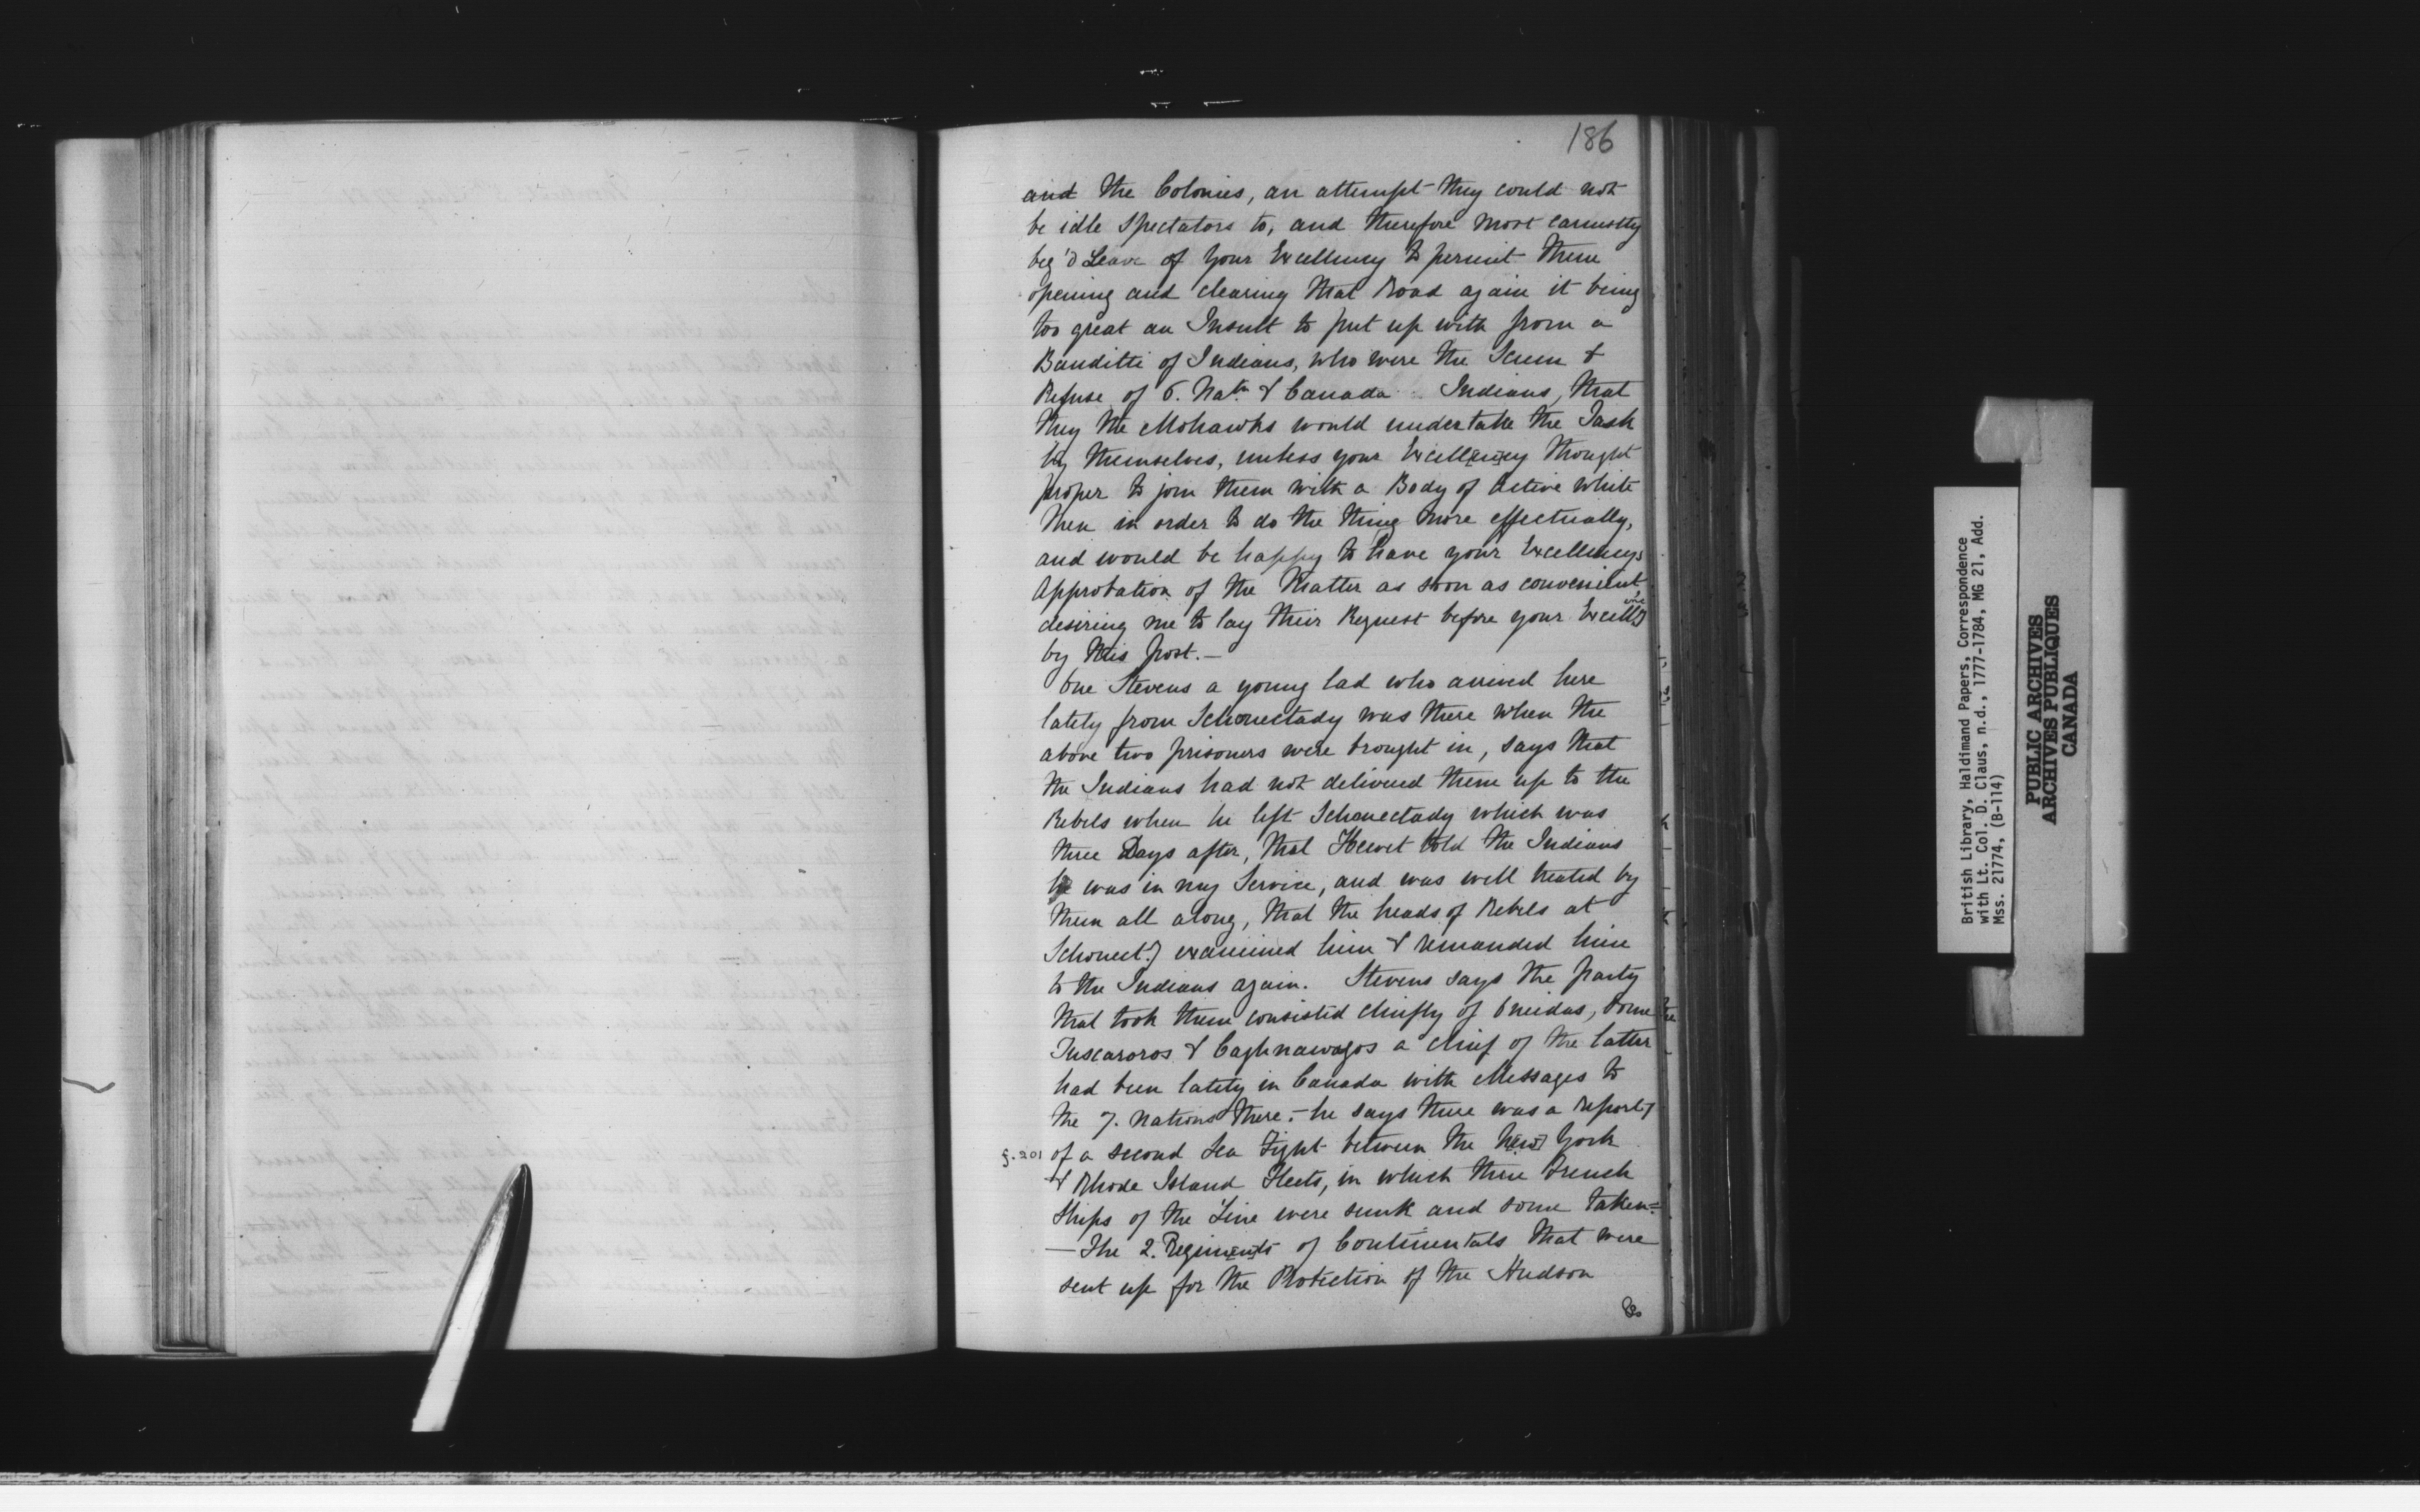 186
and the Colonies, an attempt they could not
be idle Spectators to, and therefore most earnestly
beg'd Leave of Your Excellency to permit them
opening and clearing that Road again it being
too great an Insult to put up with from a
Banditti of Indians, who were the Scum &
Refuse of 6. Natn & Canada Indians, that
they the Mohawks would undertake the Task
by themselves, unless your Excell[enc]y thought
proper to join them with a Body of active white
Men in order to do the thing more effectually,
and would be happy to have your Excellencys
Approbation of the Matter as soon as convenient,
desiring me to lay their Request before your Excell[enc]y
by this post.—
One Stevens a young lad who arrived here
lately from Schonectady was there when the
above two prisoners were brought in, says that
the Indians had not delivered them up to the
Rebels when he left Schonectady which was
three Days after, that Hewet told the Indians
he was in my Service, and was well treated by
them all along, that the heads of Rebels at
Schonect.y examined him & remanded him
to the Indians again. Stevens says the party
that took them consisted chiefly of Oneidas, some
Tuscaroros & Caghnawagos a chief of the latter
had been lately in Canada with Messages to
the 7. Nations there.- he says there was a Report
f. 201 of a second Sea Fight between the N[ew] York
& Rhode Island Fleets, in which three French
Ships of the Line were sunk and some taken=
— The 2. Regim[en]ts of Continentals that were
sent up for the Protection of the Hudson
&c
British Library, Haldimand Papers, Correspondence
with Lt. Col. D. Claus, n.d., 1777-1784, MG 21, Add.
Mss. 21774, (B-114)
PUBLIC ARCHIVES
ARCHIVES PUBLIQUES
CANADA